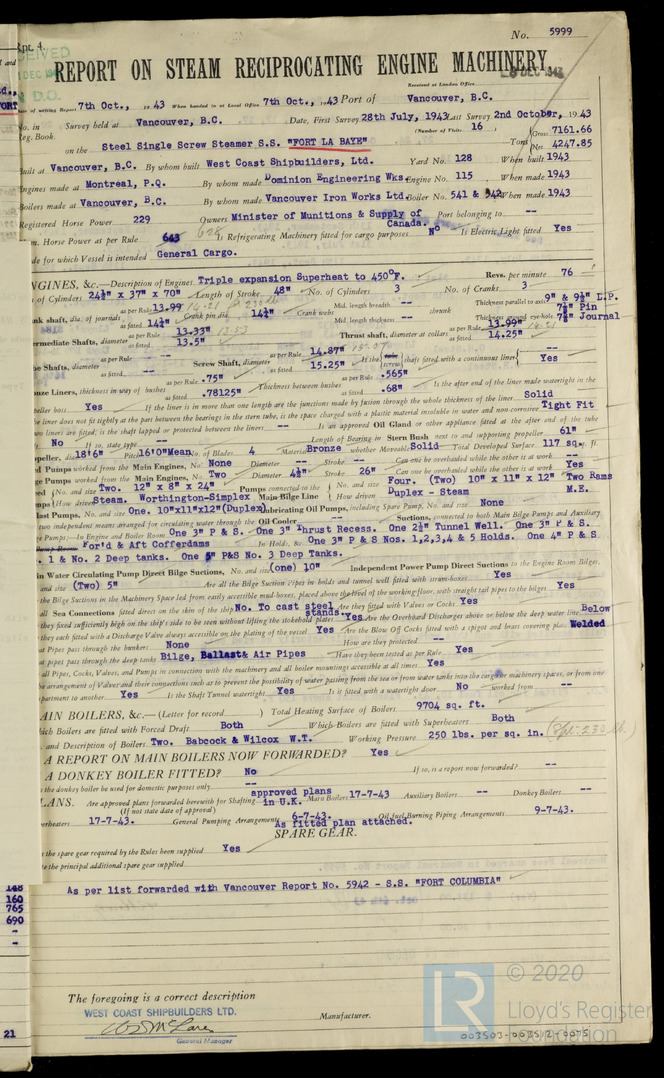 Rpt. 4.
No. 5999
RECEIVED
DEC 194
D.O.
REPORT ON STEAM RECIPROCATING ENGINE MACHINERY.
Received at London Office
DEC 1943
Date of writing Report 7th Oct., 1943 When handed in at Local Office 7th Oct., 1943 Port of Vancouver, B.C.
No. in Survey held at Vancouver, B.C. Date, First Survey 28th July, 1943 Last Survey 2nd October, 1943
Reg. Book. (Number of Visits 16
on the Steel Single Screw Steamer S.S. "FORT LA BAYE" Tons Gross 7161.66
Net 4247.85
Built at Vancouver, B.C. By whom built West Coast Shipbuilders, Ltd. Yard No. 128 When built 1943
Engines made at Montreal, P.Q. By whom made Dominion Engineering Wks. Engine No. 115 When made 1943
Boilers made at Vancouver, B.C. By whom made Vancouver Iron Works Ltd. Boiler No. 541 & 542 When made 1943
Registered Horse Power 229 Owners Minister of Munitions & Supply of Canada. Port belonging to --
Nom. Horse Power as per Rule 643 Is Refrigerating Machinery fitted for cargo purposes No Is Electric Light fitted Yes
Trade for which Vessel is intended General Cargo.
ENGINES, &c.—Description of Engines Triple expansion Superheat to 450°F. Revs. per minute 76
of Cylinders 24½" x 37" x 70" Length of Stroke 48" No. of Cylinders 3 No. of Cranks 3
Crank shaft, dia. of journals as per Rule 13.99 Crank pin dia. 14¼" Crank webs Mid. length breadth -- shrunk Thickness parallel to axis 9" & 9½" L.P.
as fitted 14¼" Mid. length thickness -- Thickness around eye-hole 7⅛" Pin
7⅞" Journal
Intermediate Shafts, diameter as per Rule 13.33" Thrust shaft, diameter at collars as per Rule 13.99"
as fitted 13.5" as fitted 14.25"
Tube Shafts, diameter as per Rule -- Screw Shaft, diameter as per Rule 14.87" Is the screw shaft fitted with a continuous liner Yes
as fitted -- as fitted 15.25"
Bronze Liners, thickness in way of bushes as per Rule .75" Thickness between bushes as per Rule .565" Is the after end of the liner made watertight in the
as fitted .78125" as fitted .68"
propeller boss Yes If the liner is in more than one length are the junctions made by fusion through the whole thickness of the liner Solid
If the liner does not fit tightly at the part between the bearings in the stern tube, is the space charged with a plastic material insoluble in water and non-corrosive Tight Fit
If two liners are fitted, is the shaft lapped or protected between the liners -- Is an approved Oil Gland or other appliance fitted at the after end of the tube
No If so, state type -- Length of Bearing in Stern Bush next to and supporting propeller 61"
Propeller, dia 18'6" Pitch 16'0" Mean No. of Blades 4 Material Bronze whether Moveable Solid Total Developed Surface 117 sq. ft.
Feed Pumps worked from the Main Engines, No. None Diameter -- Stroke -- Can one be overhauled while the other is at work --
Bilge Pumps worked from the Main Engines, No. Two Diameter 4½" Stroke 26" Can one be overhauled while the other is at work Yes
Feed Pumps No. and size Two. 12" x 8" x 24" Pumps connected to the Main Bilge Line No. and size Four. (Two) 10" x 11" x 12" Two Rams
How driven Steam. Worthington-Simplex How driven Duplex - Steam M.E.
Ballast Pumps, No. and size One. 10"x11"x12"(Duplex) Lubricating Oil Pumps, including Spare Pump, No. and size None
two independent means arranged for circulating water through the Oil Cooler -- Suctions, connected to both Main Bilge Pumps and Auxiliary
Pumps:—In Engine and Boiler Room One 3" P & S. One 3" Thrust Recess. One 2½" Tunnel Well. One 3" P & S.
Pump Room For'd & Aft Cofferdams In Holds, &c. One 3" P & S Nos. 1,2,3,4 & 5 Holds. One 4" P & S
. 1 & No. 2 Deep tanks. One 5" P&S No. 3 Deep Tanks.
Main Water Circulating Pump Direct Bilge Suctions, No. and size (one) 10" Independent Power Pump Direct Suctions to the Engine Room Bilges,
and size (Two) 5" Are all the Bilge Suction Pipes in holds and tunnel well fitted with strum-boxes Yes
the Bilge Suctions in the Machinery Space led from easily accessible mud-boxes, placed above the level of the working floor, with straight tail pipes to the bilges Yes
all Sea Connections fitted direct on the skin of the ship No. To cast steel stands. Are they fitted with Valves or Cocks Yes
they fixed sufficiently high on the ship's side to be seen without lifting the stokehold plates Yes Are the Overboard Discharges above or below the deep water line Below
they each fitted with a Discharge Valve always accessible on the plating of the vessel Yes Are the Blow Off Cocks fitted with a spigot and brass covering plate Welded
at Pipes pass through the bunkers None How are they protected --
at pipes pass through the deep tanks Bilge, Ballast & Air Pipes Have they been tested as per Rule Yes
all Pipes, Cocks, Valves, and Pumps in connection with the machinery and all boiler mountings accessible at all times Yes
the arrangement of Valves and their connections such as to prevent the possibility of water passing from the sea or from water tanks into the cargo or machinery spaces, or from one
partment to another Yes Is the Shaft Tunnel watertight Yes Is it fitted with a watertight door No worked from --
MAIN BOILERS, &c.—(Letter for record ) Total Heating Surface of Boilers 9704 sq. ft.
Which Boilers are fitted with Forced Draft Both Which Boilers are fitted with Superheaters Both
and Description of Boilers Two. Babcock & Wilcox W.T. Working Pressure 250 lbs. per sq. in. (Spt. 233 lb.)
A REPORT ON MAIN BOILERS NOW FORWARDED? Yes
A DONKEY BOILER FITTED? No If so, is a report now forwarded? --
Is the donkey boiler be used for domestic purposes only --
PLANS. Are approved plans forwarded herewith for Shafting approved plans in U.K. Main Boilers 17-7-43 Auxiliary Boilers -- Donkey Boilers --
(If not state date of approval)
Superheaters 17-7-43. General Pumping Arrangements 6-7-43. Oil fuel Burning Piping Arrangements 9-7-43.
As fitted plan attached.
SPARE GEAR.
the spare gear required by the Rules been supplied Yes
te the principal additional spare gear supplied
As per list forwarded with Vancouver Report No. 5942 - S.S. "FORT COLUMBIA"
148
160
765
690
21
The foregoing is a correct description
WEST COAST SHIPBUILDERS LTD.
Manufacturer.
General Manager
LR
© 2020
Lloyd's Register
Foundation
003503-003512-0075